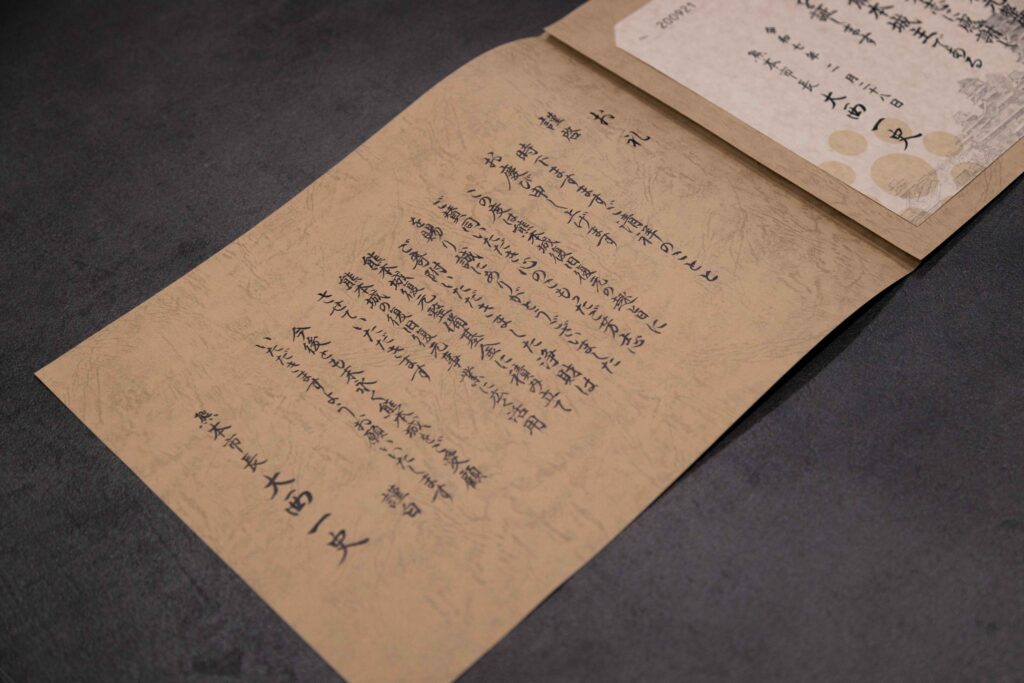 200921
本城主である
令和七年二月二十八日
熊本市長 大西一史
お礼
謹啓
時下ますますご清祥のことと
お慶び申し上げます
この度は熊本城復旧復元の趣旨に
ご賛同いただき心のこもったご芳志
を賜り誠にありがとうございました
ご寄附いただきました浄財は
熊本城復元整備基金に積み立て
熊本城の復旧復元事業に広く活用
させていただきます
今後とも末永く熊本城をご愛顧
いただきますようお願いいたします
謹白
熊本市長 大西一史